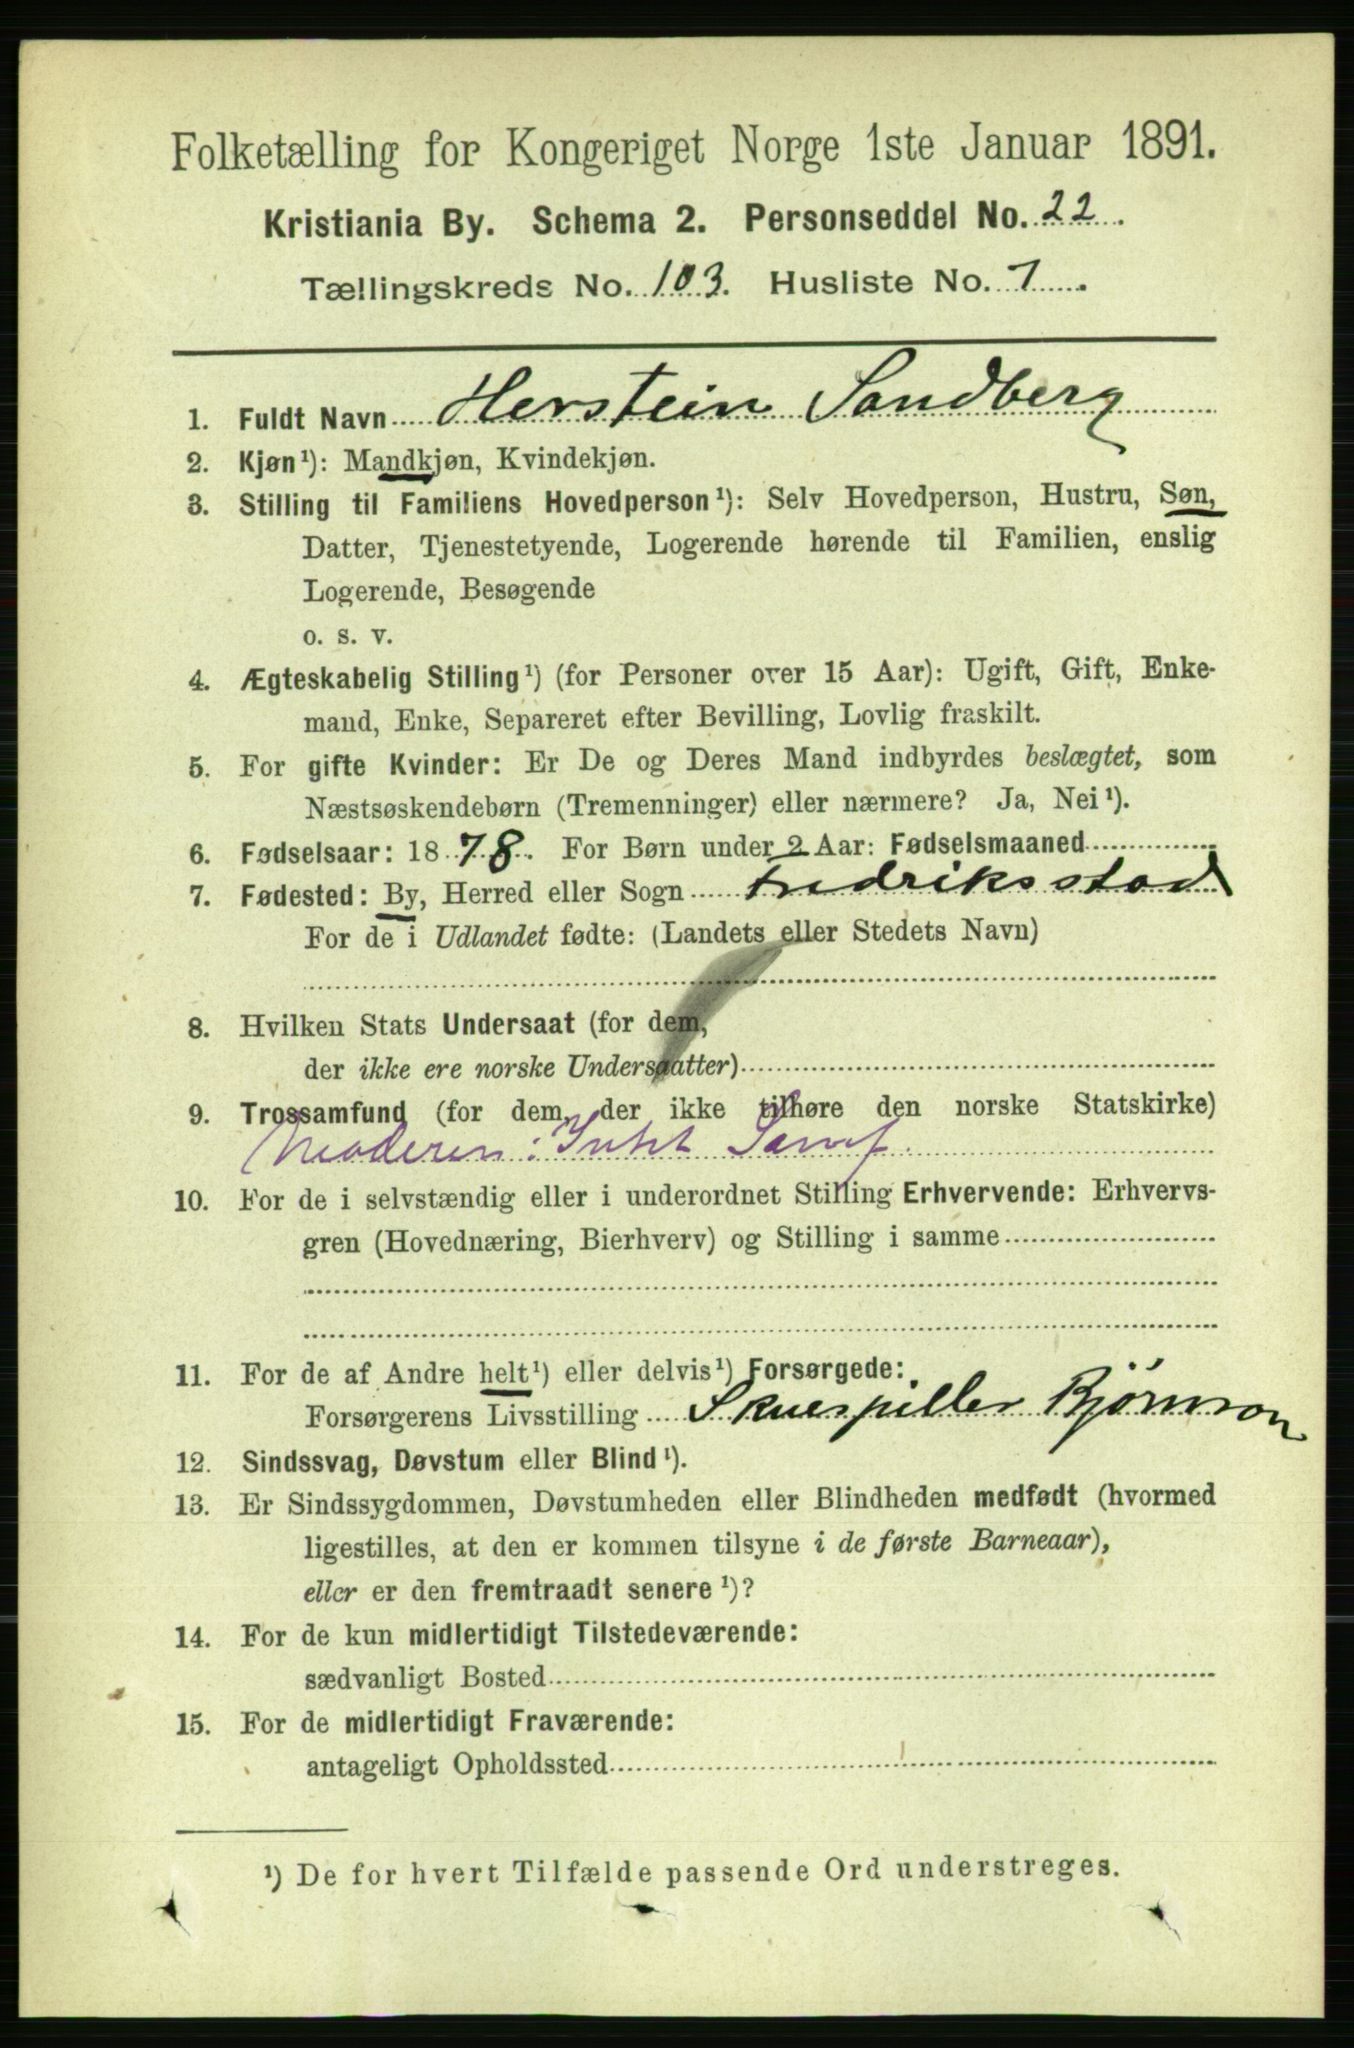 Folketælling for Kongeriget Norge 1ste Januar 1891.
Kristiania By. Schema 2. Personseddel No. 22.
Tællingskreds No. 103. Husliste No. 7.
1. Fuldt Navn Herstein Sandberg
2. Kjøn¹): Mandkjøn, Kvindekjøn.
3. Stilling til Familiens Hovedperson¹): Selv Hovedperson, Hustru, Søn,
Datter, Tjenestetyende, Logerende hørende til Familien, enslig
Logerende, Besøgende
o. s. v.
4. Ægteskabelig Stilling¹) (for Personer over 15 Aar): Ugift, Gift, Enke-
mand, Enke, Separeret efter Bevilling, Lovlig fraskilt.
5. For gifte Kvinder: Er De og Deres Mand indbyrdes beslægtet, som
Næstsøskendebørn (Tremenninger) eller nærmere? Ja, Nei¹).
6. Fødselsaar: 1878. For Børn under 2 Aar: Fødselsmaaned
7. Fødested: By, Herred eller Sogn Fredriksstad
For de i Udlandet fødte: (Landets eller Stedets Navn)
8. Hvilken Stats Undersaat (for dem,
der ikke ere norske Undersaatter)
9. Trossamfund (for dem, der ikke tilhøre den norske Statskirke)
Moderen: Samf.
10. For de i selvstændig eller i underordnet Stilling Erhvervende: Erhvervs-
gren (Hovednæring, Bierhverv) og Stilling i samme
11. For de af Andre helt¹) eller delvis¹) Forsørgede:
Forsørgerens Livsstilling Skuespiller Bjørnson
12. Sindssvag, Døvstum eller Blind¹).
13. Er Sindssygdommen, Døvstumheden eller Blindheden medfødt (hvormed
ligestilles, at den er kommen tilsyne i de første Barneaar),
eller er den fremtraadt senere¹)?
14. For de kun midlertidigt Tilstedeværende:
sædvanligt Bosted
15. For de midlertidigt Fraværende:
antageligt Opholdssted
¹) De for hvert Tilfælde passende Ord understreges.